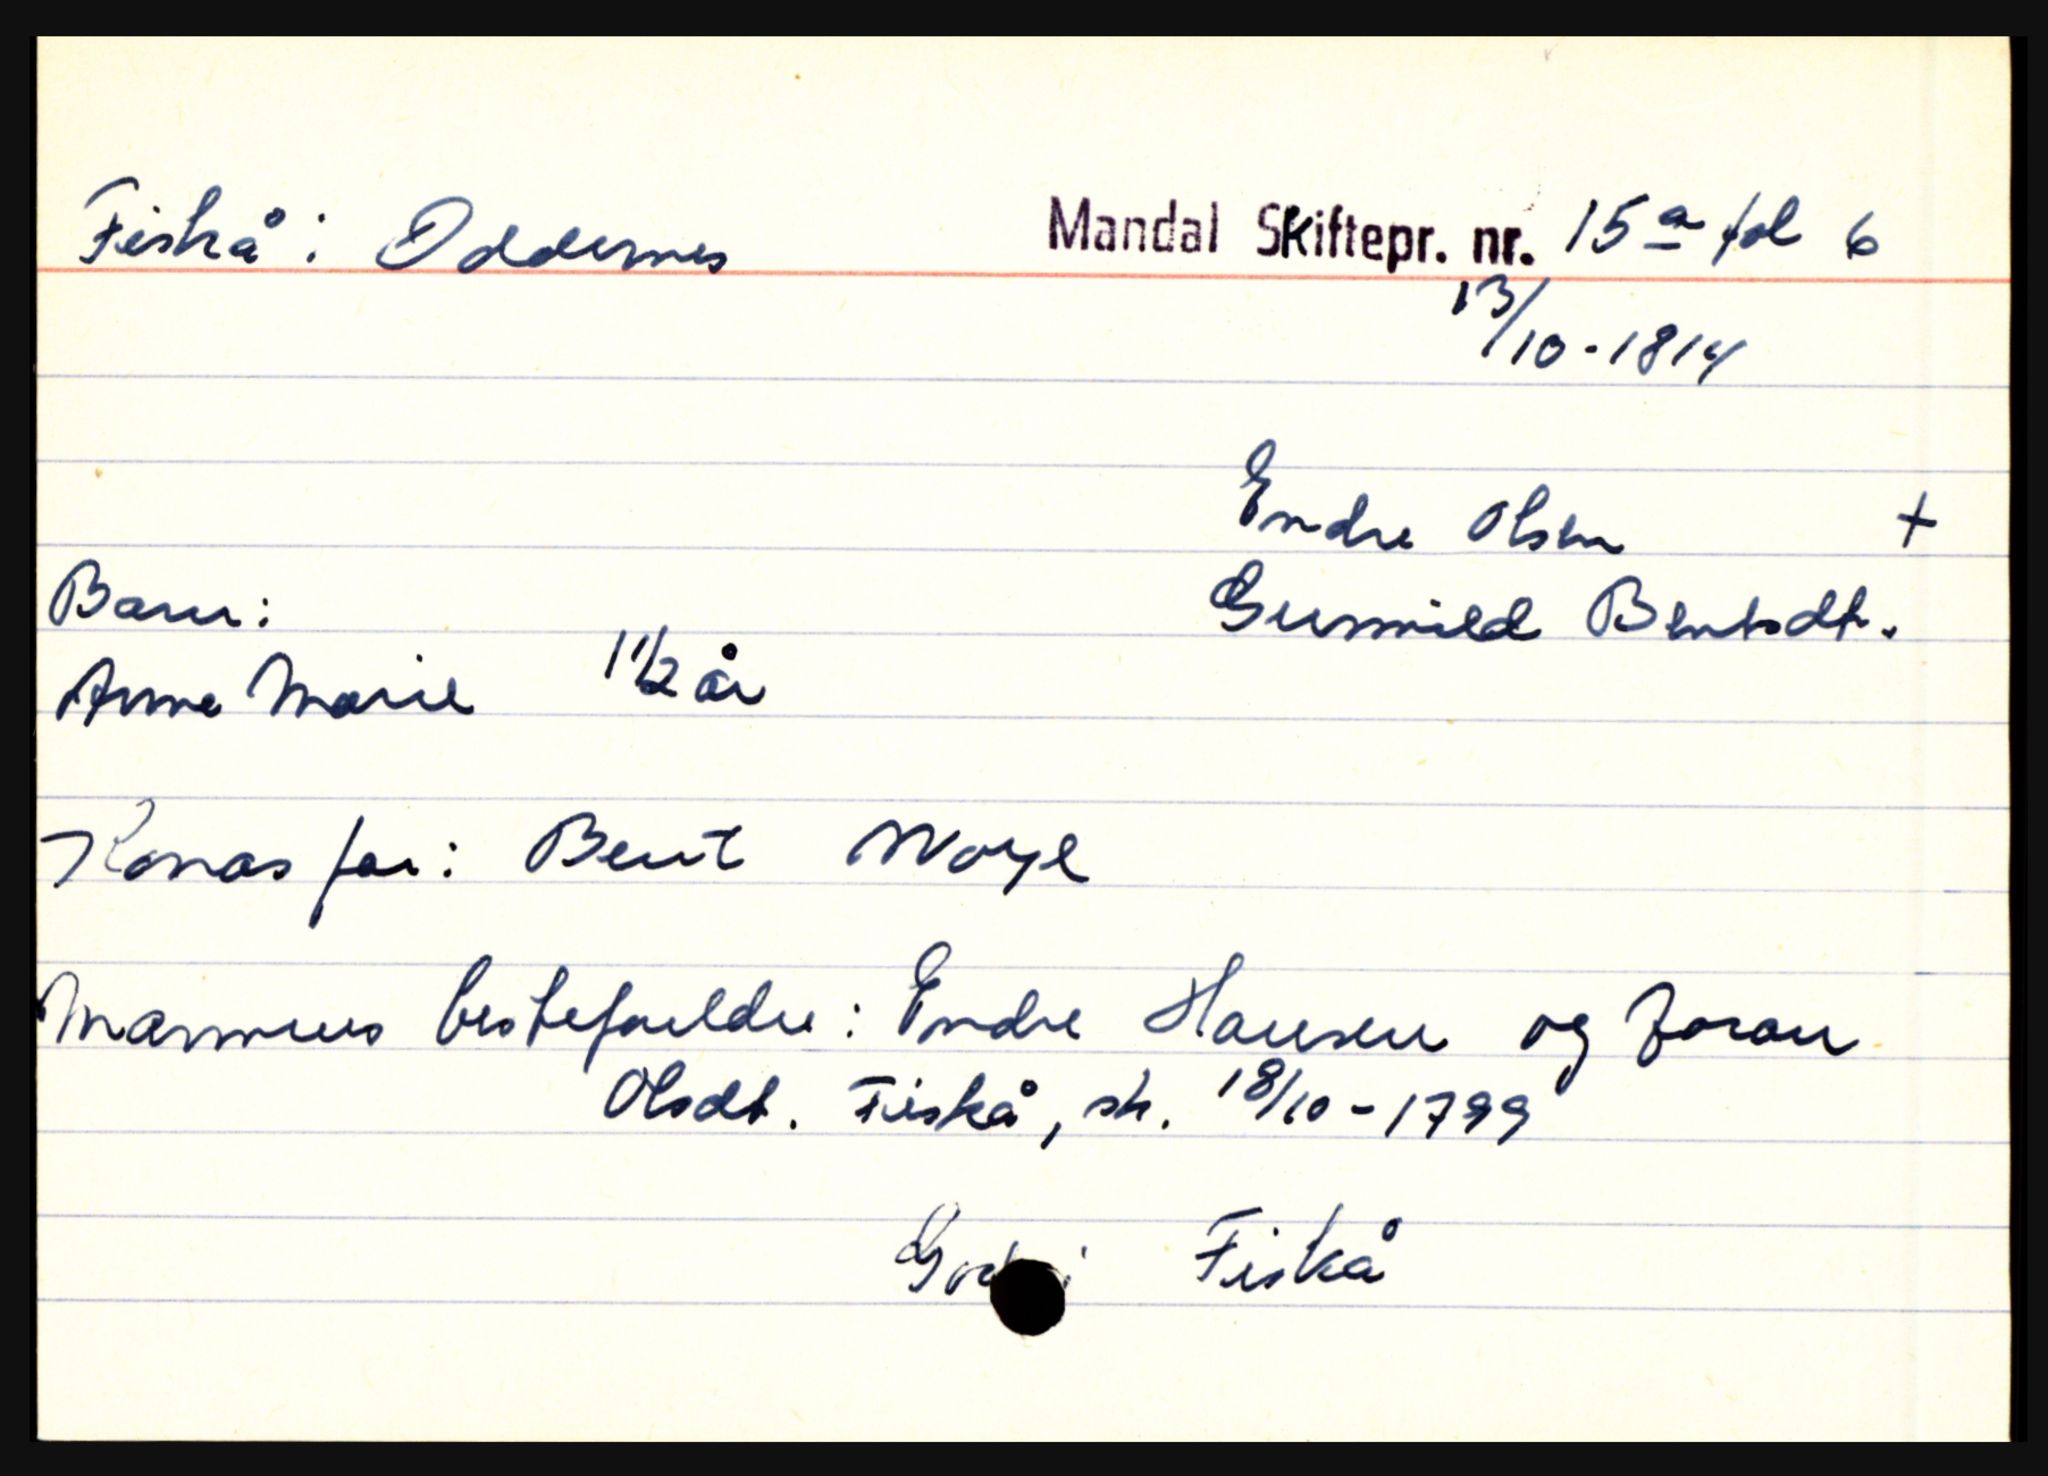 Fiskå i Oddernes Mandal Skiftepr. nr. 15a fol 6
13/10-1814
Endre Olsen +
Barn: Gunnild Bentsdt.
Anne Marie 1 1/2 år
Konas far: Bent Voye
Mannens besteforeldre: Endre Hansen og Joran
Olsdt. Fiskå, sk. 18/10-1799
i Fiskå